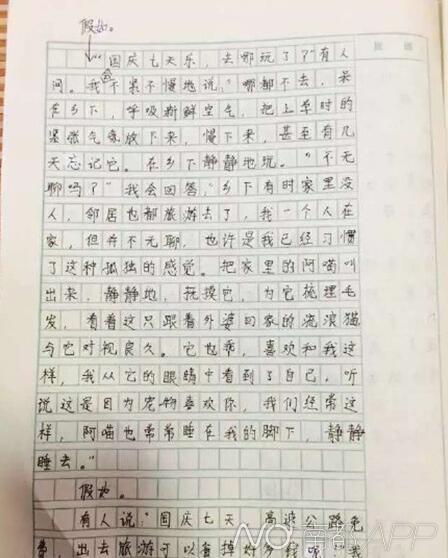 假如。
"国庆七天乐,去哪玩了?"有人
问。我会不紧不慢地说,"哪都不去,呆
在乡下,呼吸新鲜空气,把上学时的
紧张气氛放下来,慢下来,甚至有几
天忘记它。在乡下静静地玩。""不无
聊吗?"我会回答,"乡下有时家里没
人,邻居也都旅游去了,我一个人在
家,但并不无聊,也许是我已经习惯
了这种孤独的感觉。把家里的阿喵叫
出来,静静地,抚摸它,为它梳理毛
发,看着这只跟着外婆回家的流浪猫
与它对视良久。它也乖,喜欢和我这
样,我从它的眼睛中看到了自己,听
说这是因为宠物喜欢你,我们经常这
样,阿喵也常常睡在我的脚下,静静
睡去。"
假如。
有人说:"国庆七天,高速公路免
费,出去旅游可以省掉好多钱呢"我
南都APP